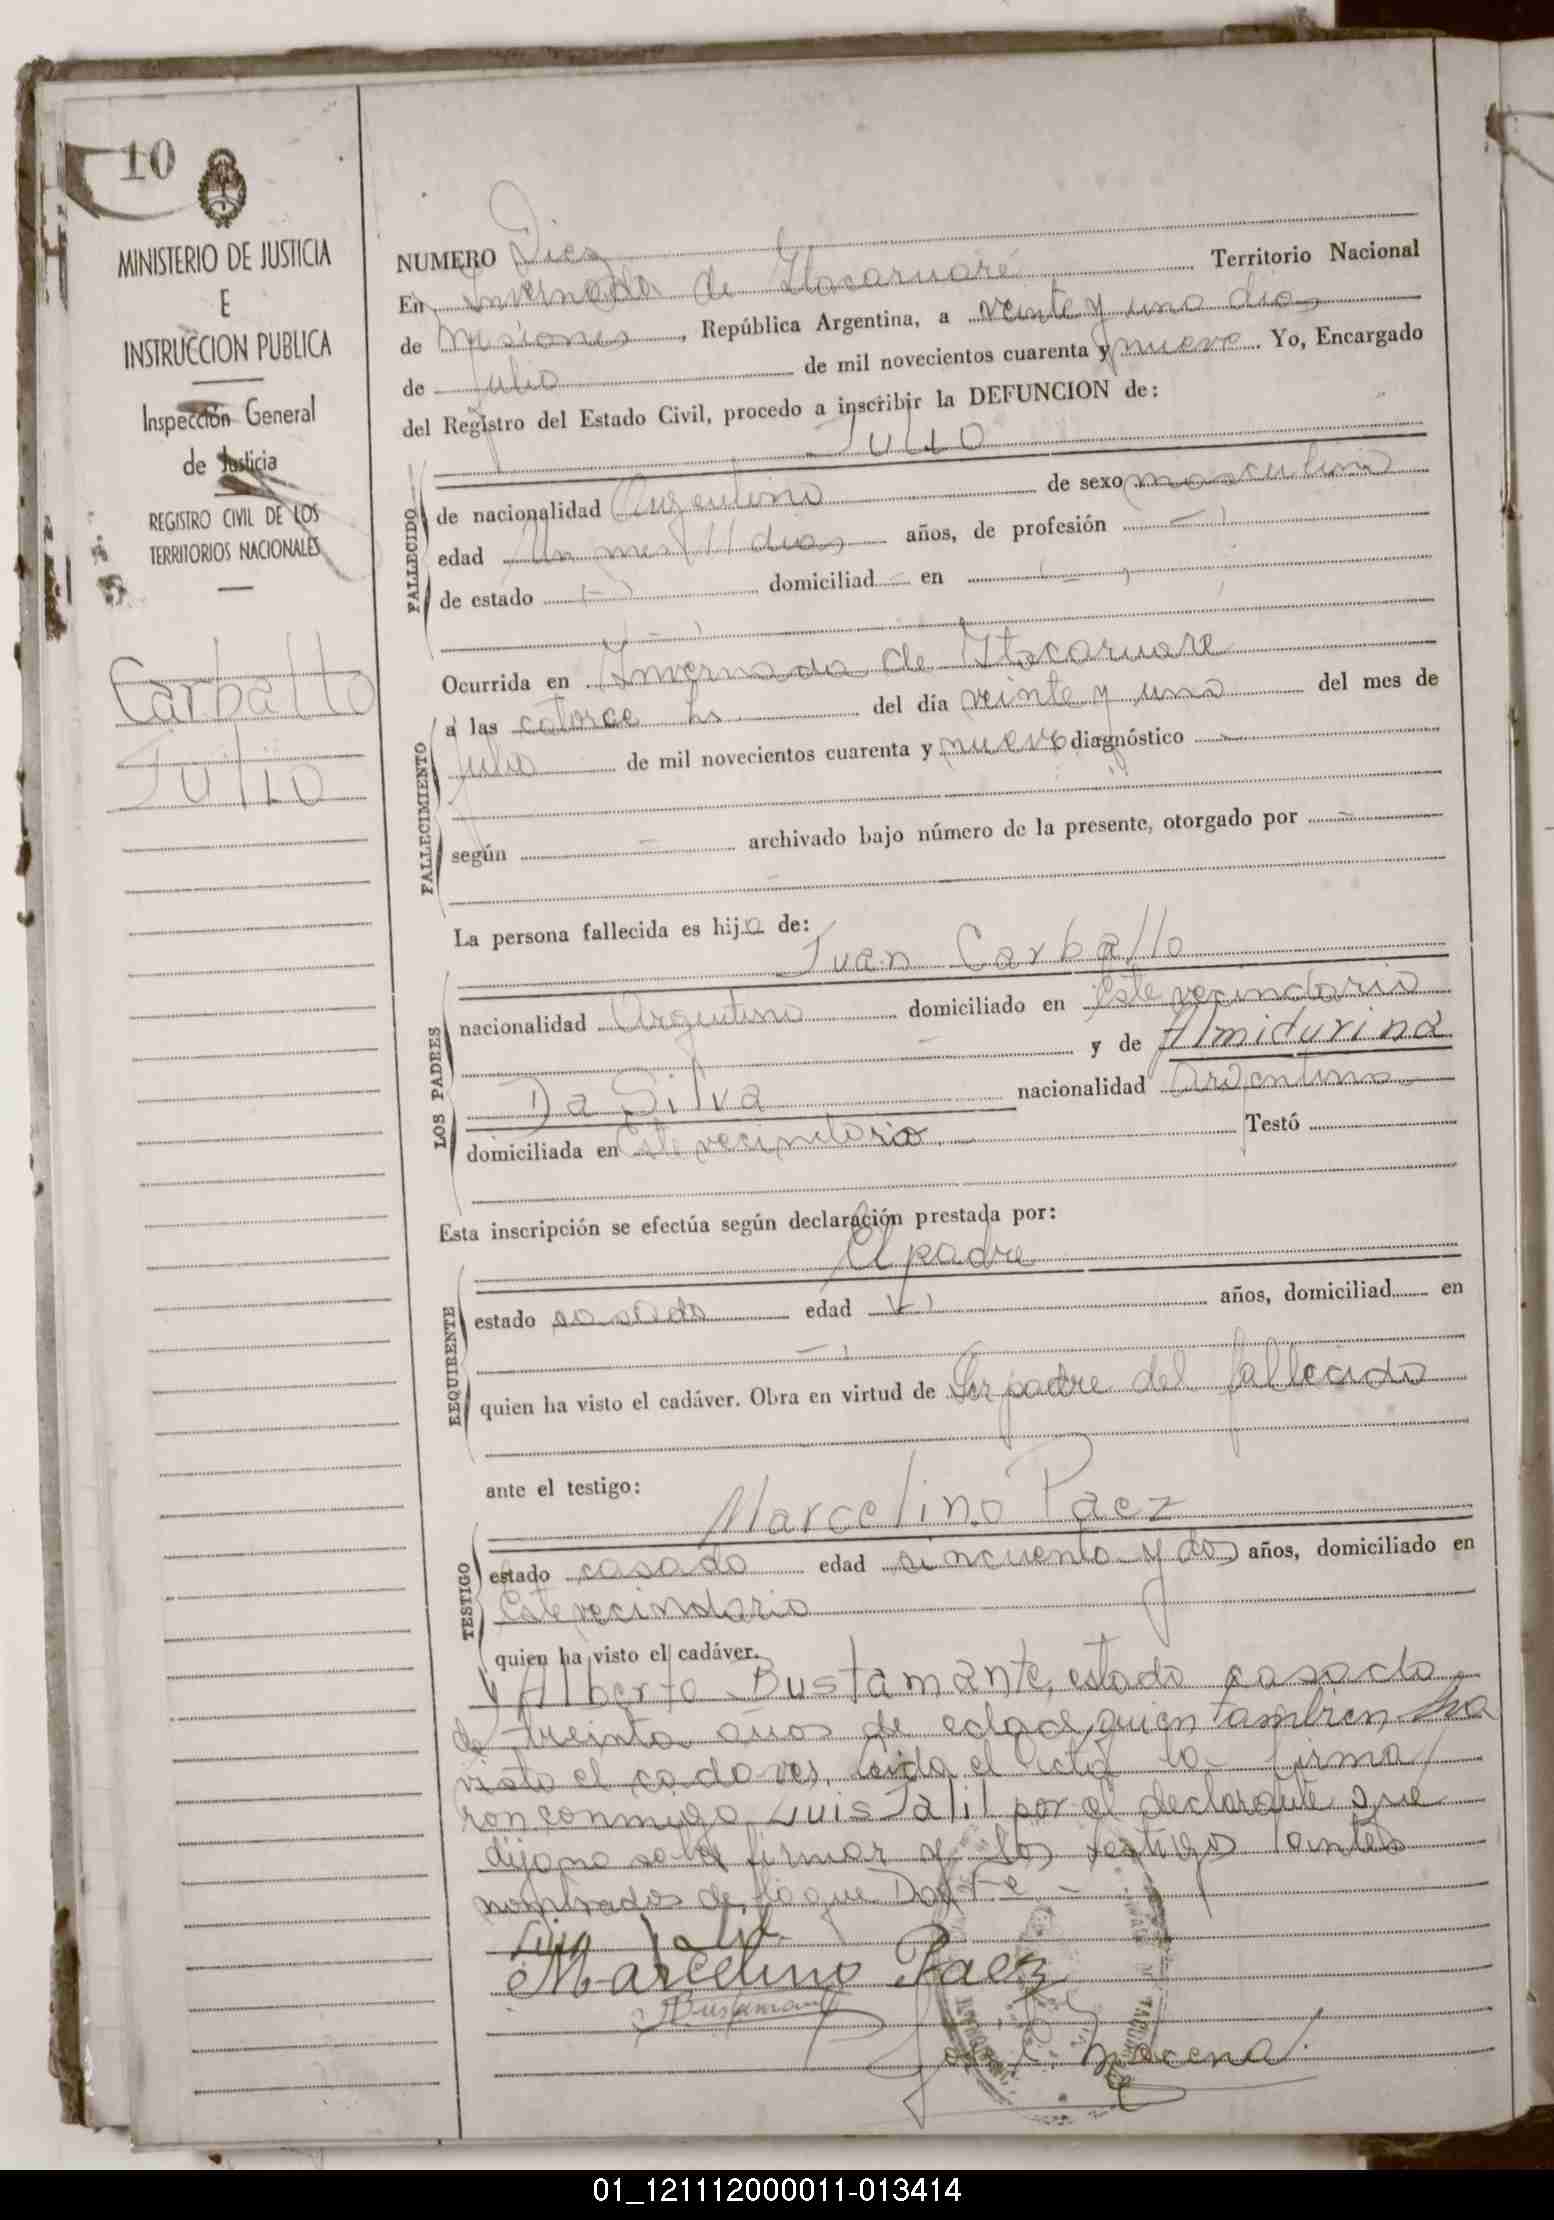 10
MINISTERIO DE JUSTICIA
E
INSTRUCCION PUBLICA
Inspección General
de Justicia
REGISTRO CIVIL DE LOS
TERRITORIOS NACIONALES
Carballo
Julio
NUMERO Diez
En Invernada de Itacaruaré Territorio Nacional
de Misiones, República Argentina, a veinte y uno dias
de Julio de mil novecientos cuarenta y nueve. Yo, Encargado
del Registro del Estado Civil, procedo a inscribir la DEFUNCION de:
Julio
FALLECIDO
de nacionalidad Argentino de sexo masculino
edad Un mes 11 dias años, de profesión -
de estado - domiciliad - en -
FALLECIMIENTO
Ocurrida en Invernada de Itacaruare
a las catorce hs del día veinte y uno del mes de
Julio de mil novecientos cuarenta y nueve diagnóstico -
según - archivado bajo número de la presente, otorgado por -
La persona fallecida es hijo de:
LOS PADRES
Juan Carballo
nacionalidad Argentino domiciliado en Este vecindario
- y de Almidurina
Da Silva nacionalidad argentina
domiciliada en Este vecindario. - Testó
Esta inscripción se efectúa según declaración prestada por:
REQUIRENTE
El padre
estado edad años, domiciliad en
quien ha visto el cadáver. Obra en virtud de Ser padre del fallecido
ante el testigo:
TESTIGO
Marcelino Paez
estado casado edad cincuenta y dos años, domiciliado en
Este vecindario
quien ha visto el cadáver.
Y Alberto Bustamante, estado casado
de treinta años de edad, quien tambien ha
visto el cadaver, Leida el acta la firma
ron conmigo Luis Jalil por el declarante que
dijo no saber firmar y los testigos antes
nombrados de lo que Doy Fe -
Luis Jalil
Marcelino Paez
ABustamante
01_121112000011-013414